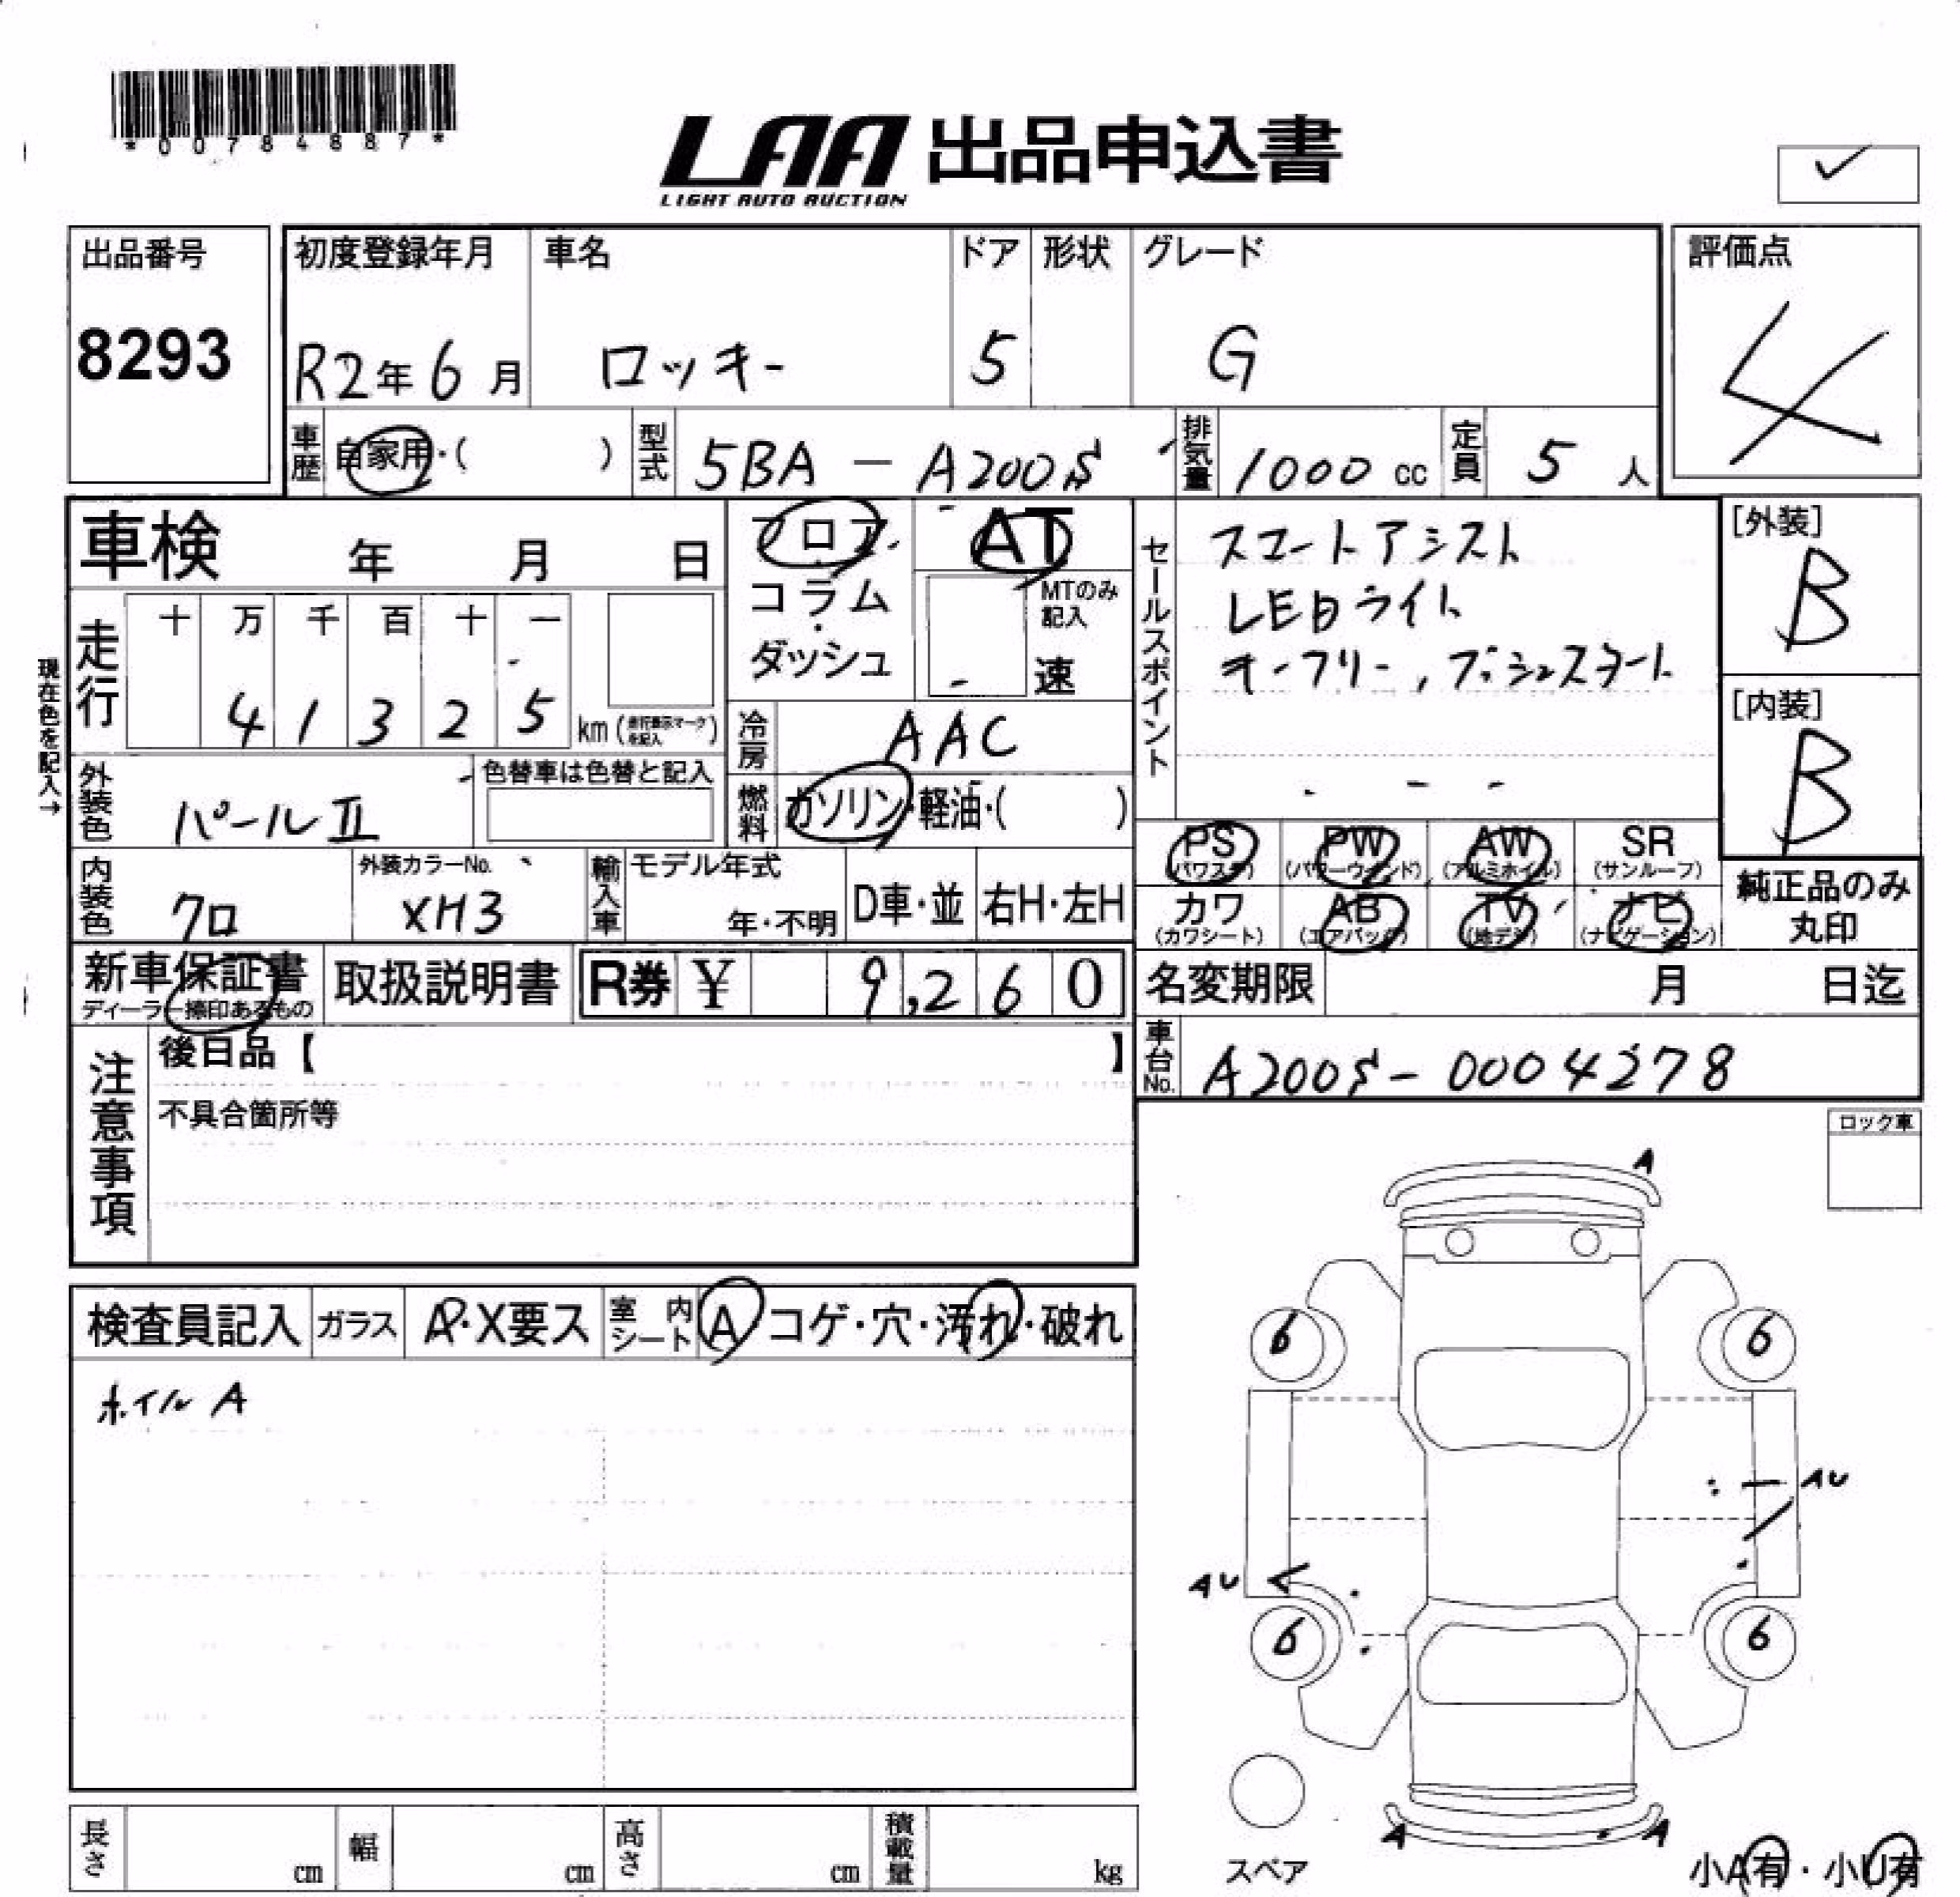 *00784887*
LAA 出品申込書
LIGHT AUTO AUCTION
✓
出品番号
8293
初度登録年月
R2年6月
車名
ロッキー
ドア
5
形状
グレード
G
評価点
4
車歴
自家用・( )
型式
5BA - A200S
排気量
1000 cc
定員
5 人
車検 年 月 日
フロア
コラム
ダッシュ
AT
MTのみ
記入
速
セールスポイント
スマートアシスト
LEDライト
キーフリー,プッシュスタート
[外装]
B
[内装]
B
現在色を記入→
走行
十 万 千 百 十 一
4 1 3 2 5
km(走行表示マークを記入)
冷房
AAC
外装色
パールⅡ
色替車は色替と記入
燃料
ガソリン・軽油・( )
PS
(パワステ)
PW
(パワーウインド)
AW
(アルミホイル)
SR
(サンルーフ)
内装色
クロ
外装カラーNo.
XH3
輸入車
モデル年式
年・不明
D車・並
右H・左H
カワ
(カワシート)
AB
(エアバック)
TV
(地デジ)
ナビ
(ナビゲーション)
純正品のみ
丸印
新車保証書
ディーラー捺印あるもの
取扱説明書
R券 ¥ 9,260
名変期限 月 日迄
注意事項
後日品【 】
不具合箇所等
車台No.
A200S-0004278
ロック車
検査員記入
ガラス
A・X要ス
室内
シート
A コゲ・穴・汚れ・破れ
ホイルA
A
6 6
AU
AU
6 6
A A
スペア
小A有・小U有
長さ cm
幅 cm
高さ cm
積載量 kg